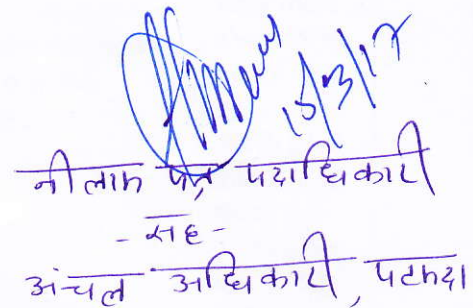 15/3/17
नीलाम पत्र पदाधिकारी
- सह -
अंचल अधिकारी, पटमदा